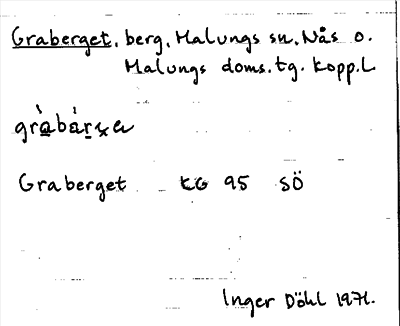 Graberget, berg, Malungs sn, Nås o.
Malungs doms.tg. Kopp.L
Graberget KG 95 SÖ
Inger Döhl 1971.